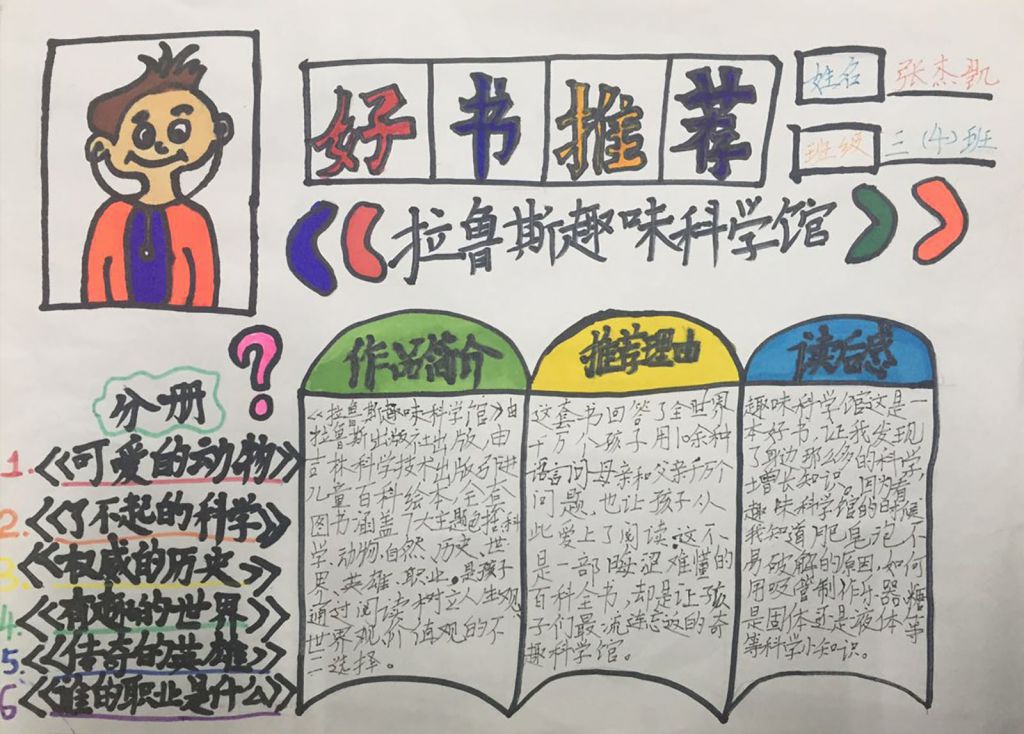 好书推荐
姓名 张杰凯
班级 三（4）班
《《拉鲁斯趣味科学馆》》
?
分册
1.《可爱的动物》
2.《了不起的科学》
3.《权威的历史》
4.《有趣的世界》
5《传奇的英雄》
6《谁的职业是什么》
作品简介
《拉鲁斯趣味科学馆》由
拉鲁斯出版社出版,由
吉林科学技术出版引进
儿童百科绘本,全套
图书涵盖了大主题包括科
学、动物、自然、历史、世
界、英雄、职业。是孩子
通过阅读,树立人生观,
世界观,价值观的不
二选择。
推荐理由
这套书回答了全世界
十万个孩子用10余种
语言问母亲和父亲千万个
问题,也让孩子从
此爱上了阅读.这不
是一部晦涩难懂的
百科全书,却是让孩
子们最流连忘返的奇
趣科学馆。
读后感
趣味科学馆这是一
本好书,让我发现
了身边那么多的科学,
增长知识。因为看
趣味科学馆的时候
我知道肥皂泡不
易破解的原因,如何
用吸管制作乐器,糖
是固体还是液体等
等科学小知识。